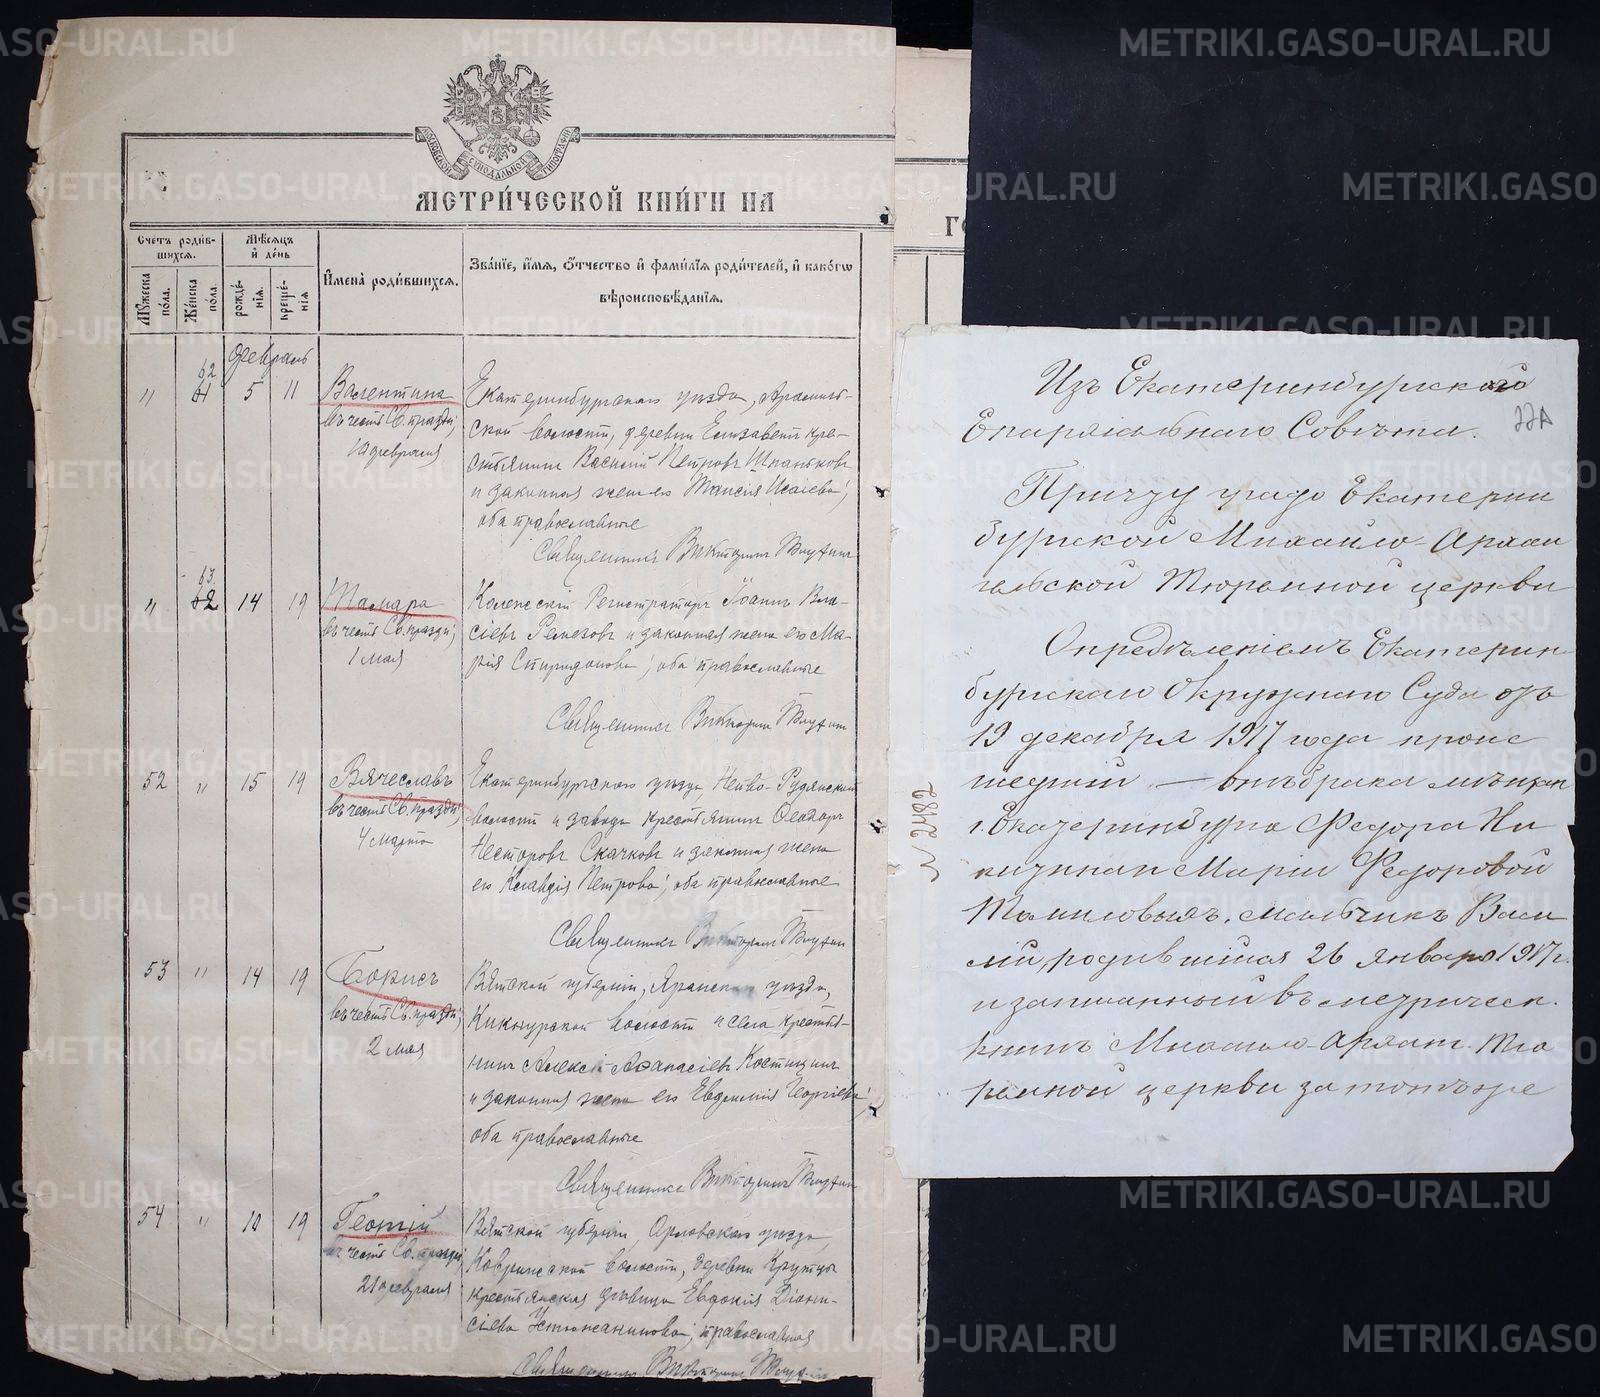 МОСКОВСКОЙ СѴНОДАЛЬНОЙ ТИПОГРАФІИ
МЕТРИ́ЧЕСКОЙ КНИ́ГИ НА
Счетъ роди́в-
шихся.
Мѣсяцъ
и день
Имена̀ роди́вшихся.
Зва́нїе, и́мя, о́тчество и фами́лїя роди́телей, и како́гѡ
вѣроисповѣ́данїя.
Му́жеска по́ла.
Же́нска по́ла.
рожде́нїя.
креще́нїя
февраль
" 62 61 5 11 Валентина
въ честь Св. праздн;
10 февраля
Екатеринбургскаго уѣзда, Арамиль-
ской волости, деревни Елизаветъ кре-
стьянинъ Василій Петровъ
и законная жена его Таисія Исаіева;
оба православные
Священникъ Викторинъ
" 63. 62 14 19 Тамара
въ честь Св. праздн;
1 мая
Коллежскій Регистраторъ Іоаннъ Вла-
сіевъ Ремезовъ и законная жена его Ма-
рія Спиридонова; оба православные
Священникъ Викторинъ
52 " 15 19 Вячеславъ
въ честь Св. праздн;
4 марта
Екатеринбургскаго уѣзда Нейво-Рудянской
волости и завода крестьянинъ Ѳеодоръ
Несторовъ Скачковъ и законная жена
его Клавдія Петрова; оба православные
Священникъ Викторинъ
53 " 14 19 Борисъ
въ честь Св. праздн;
2 мая
Вятской губерніи, Яранскаго уѣзда,
Кикнурской волости и села крестья-
нинъ Алексій Аѳанасіевъ Костицинъ
и законная жена его Евдокія Георгіева;
оба православные
Священникъ Викторинъ
54 " 10 19 Георгій
въ честь Св. праздн;
21 февраля
Вятской губерніи, Орловскаго уѣзда,
волости, деревни Крутцы
крестьянская дѣвица Евдокія Діони-
сіева Устюжанинова; православная
Священникъ Викторинъ
Изъ Екатеринбургского
Епархіальнаго Совѣта.
Причту градо Екатерин
бургской Михаило-Архан
гельской Тюремной церкви
Опредѣленіемъ Екатерин
бургскаго Окружнаго Суда отъ
19 декабря 1917 года проис
шедшій — внѣ брака мѣщан
г. Екатеринбурга Федора Ни
китина и Маріи Федоровой
Томиловыхъ, мальчикъ Васи
лій, родившійся 26 января 1917г.
и записанный въ метрическ.
книгѣ Михаило-Арханг. Тю
ремной церкви за тотъ же
№ 2482
METRIKI.GASO-URAL.RU